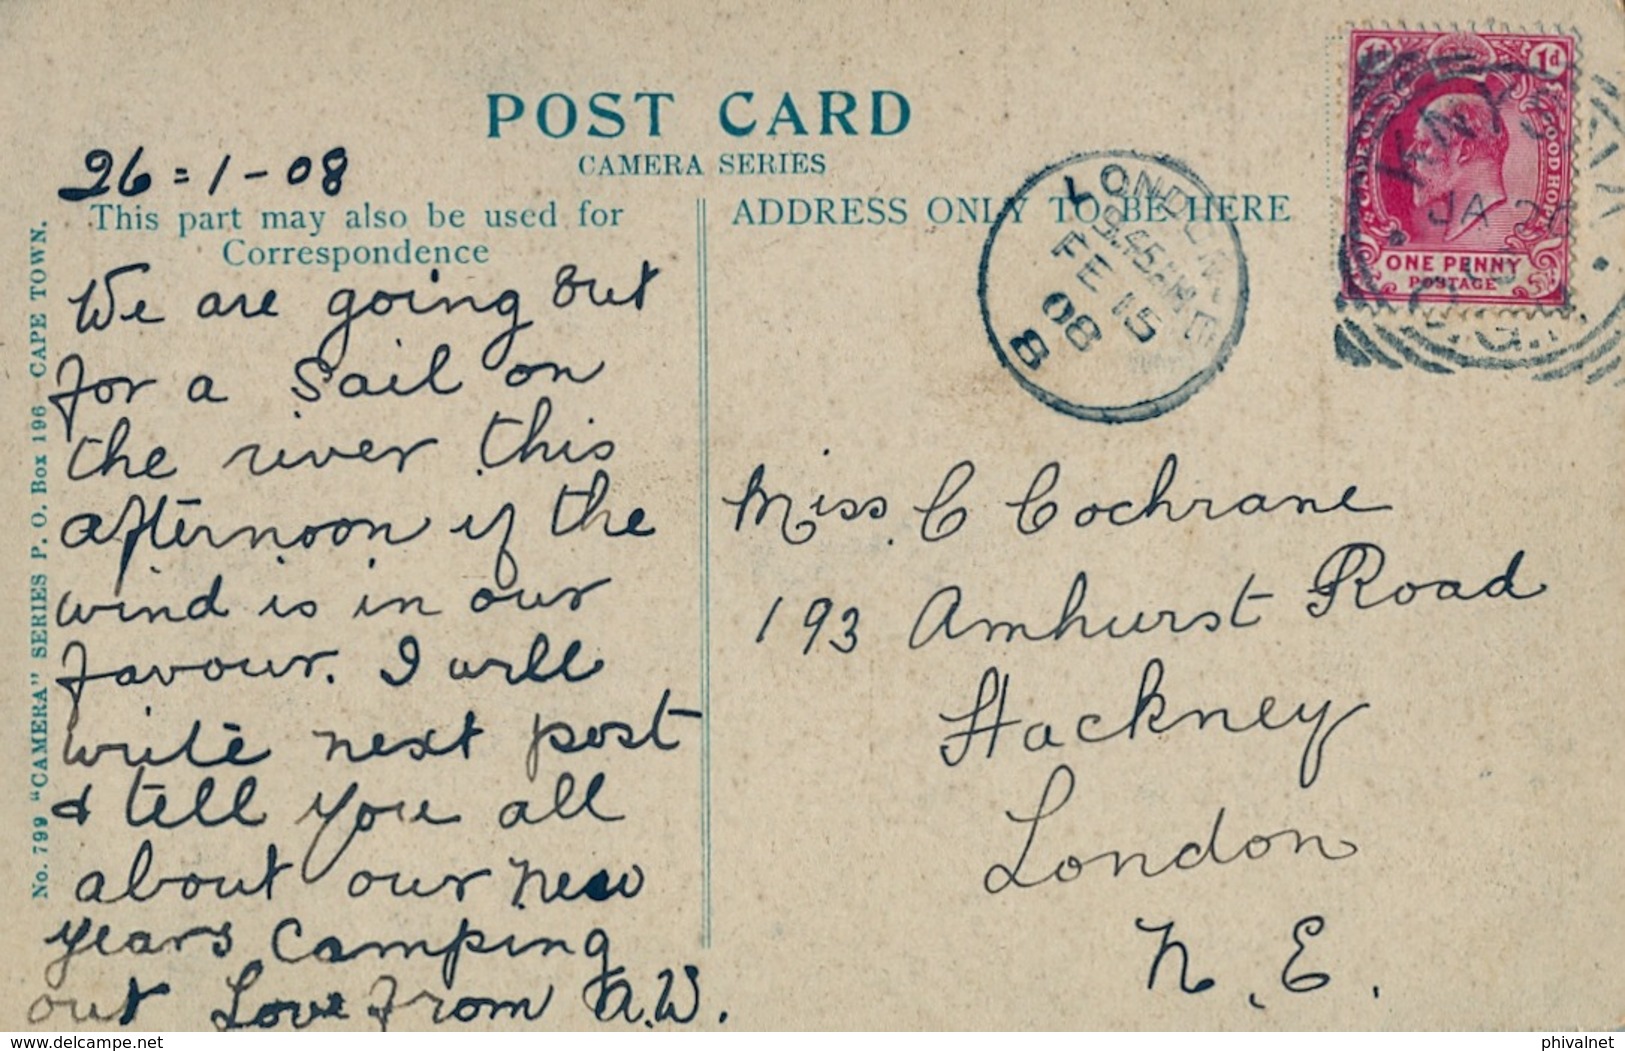 POST CARD
CAMERA SERIES
26=1-08
This part may also be used for
Correspondence
ADDRESS ONLY TO BE HERE
We are going out
for a sail on
the river this
afternoon if the
wind is in our
favour. I will
write next post
& tell you all
about our new
years camping
out Love from A.W.
No. 799 "CAMERA" SERIES P. O. Box 196 CAPE TOWN.
LONDON N.E
9.45PM
FE 15
08
8
1d 1d
CAPE OF GOOD HOPE
ONE PENNY
POSTAGE
KNYSNA
JA
Miss. C Cochrane
193 Amhurst Road
Hackney
London
N.E.
delcampe.net
phivalnet